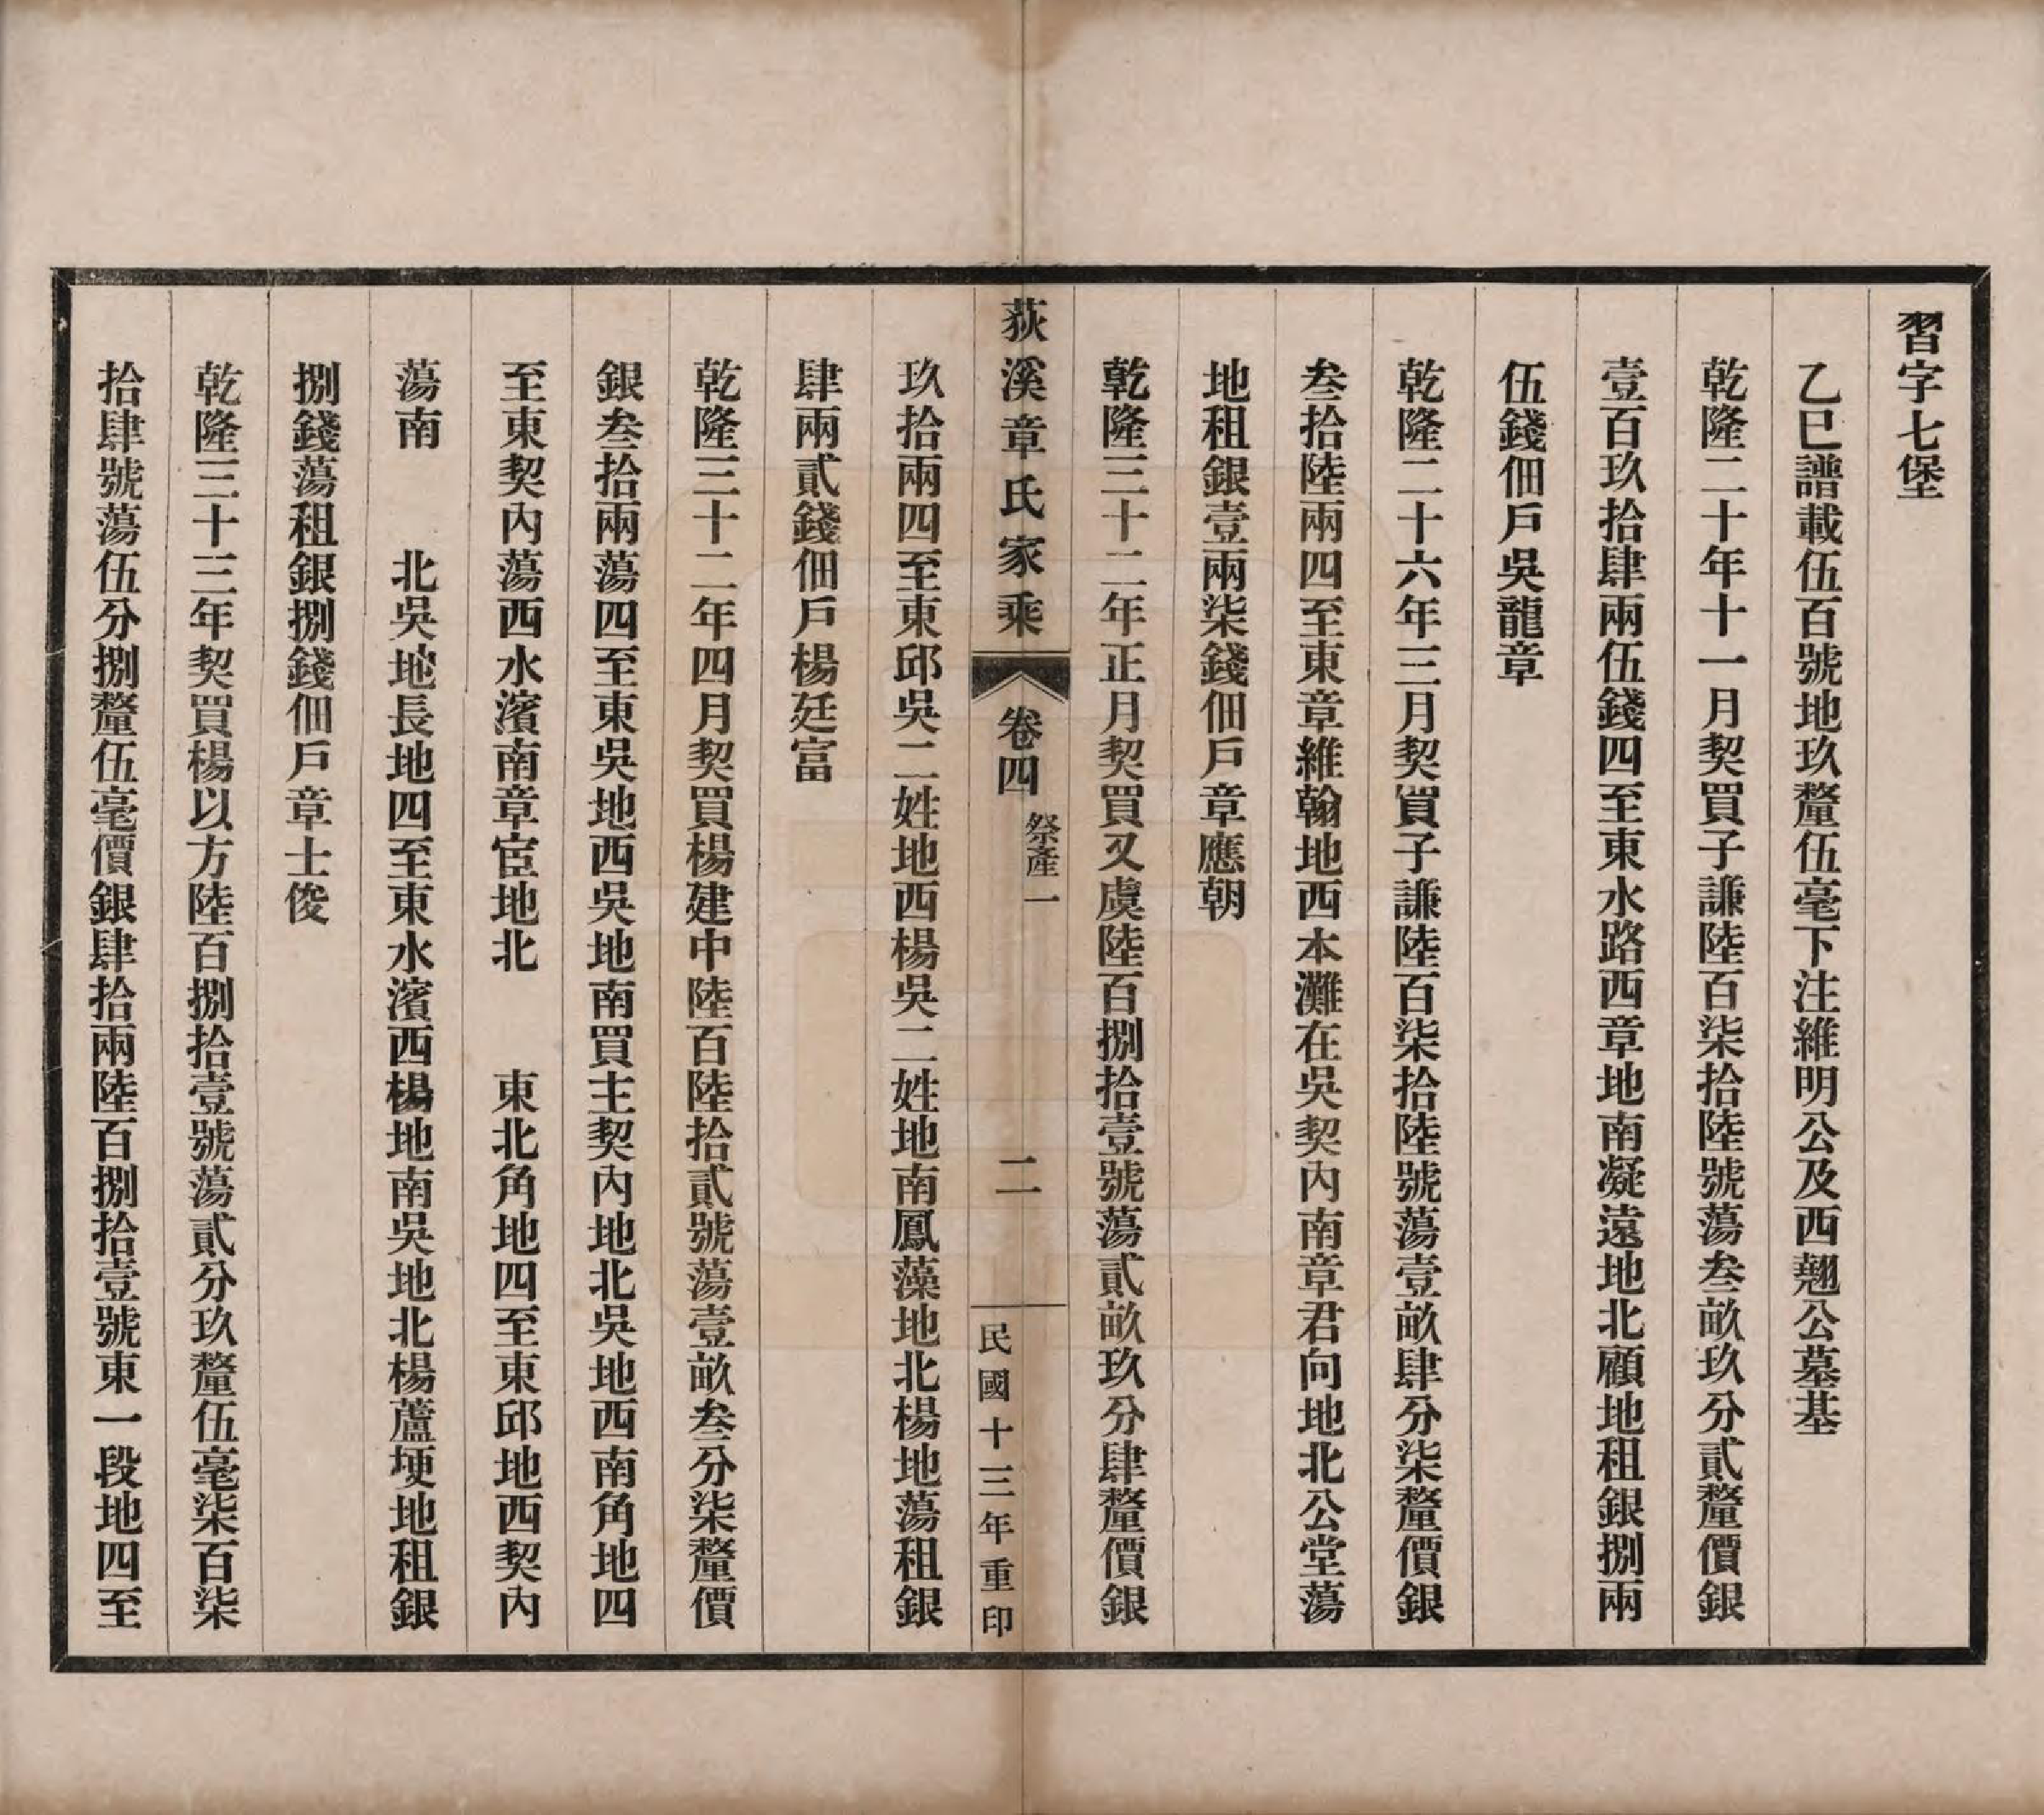 習字七堡
乙巳譜載伍百號地玖釐伍毫下注維明公及西翹公墓基
乾隆二十年十一月契買子謙陸百柒拾陸號蕩叁畝玖分貳釐價銀
壹百玖拾肆兩伍錢四至東水路西章地南凝遠地北顧地租銀捌兩
伍錢佃戶吳龍章
乾隆二十六年三月契買子謙陸百柒拾陸號蕩壹畝肆分柒釐價銀
叁拾陸兩四至東章維翰地西本灘在吳契內南章君向地北公堂蕩
地租銀壹兩柒錢佃戶章應朝
乾隆三十二年正月契買又虞陸百捌拾壹號蕩貳畝玖分肆釐價銀
荻溪章氏家乘 卷四 祭產一 二 民國十三年重印
玖拾兩四至東邱吳二姓地西楊吳二姓地南鳳藻地北楊地蕩租銀
肆兩貳錢佃戶楊廷富
乾隆三十二年四月契買楊建中陸百陸拾貳號蕩壹畝叁分柒釐價
銀叁拾兩蕩四至東吳地西吳地南買主契內地北吳地西南角地四
至東契內蕩西水濱南章宦地北　　東北角地四至東邱地西契內
蕩南　　北吳地長地四至東水濱西楊地南吳地北楊蘆埂地租銀
捌錢蕩租銀捌錢佃戶章士俊
乾隆三十三年契買楊以方陸百捌拾壹號蕩貳分玖釐伍毫柒百柒
拾肆號蕩伍分捌釐伍毫價銀肆拾兩陸百捌拾壹號東一段地四至